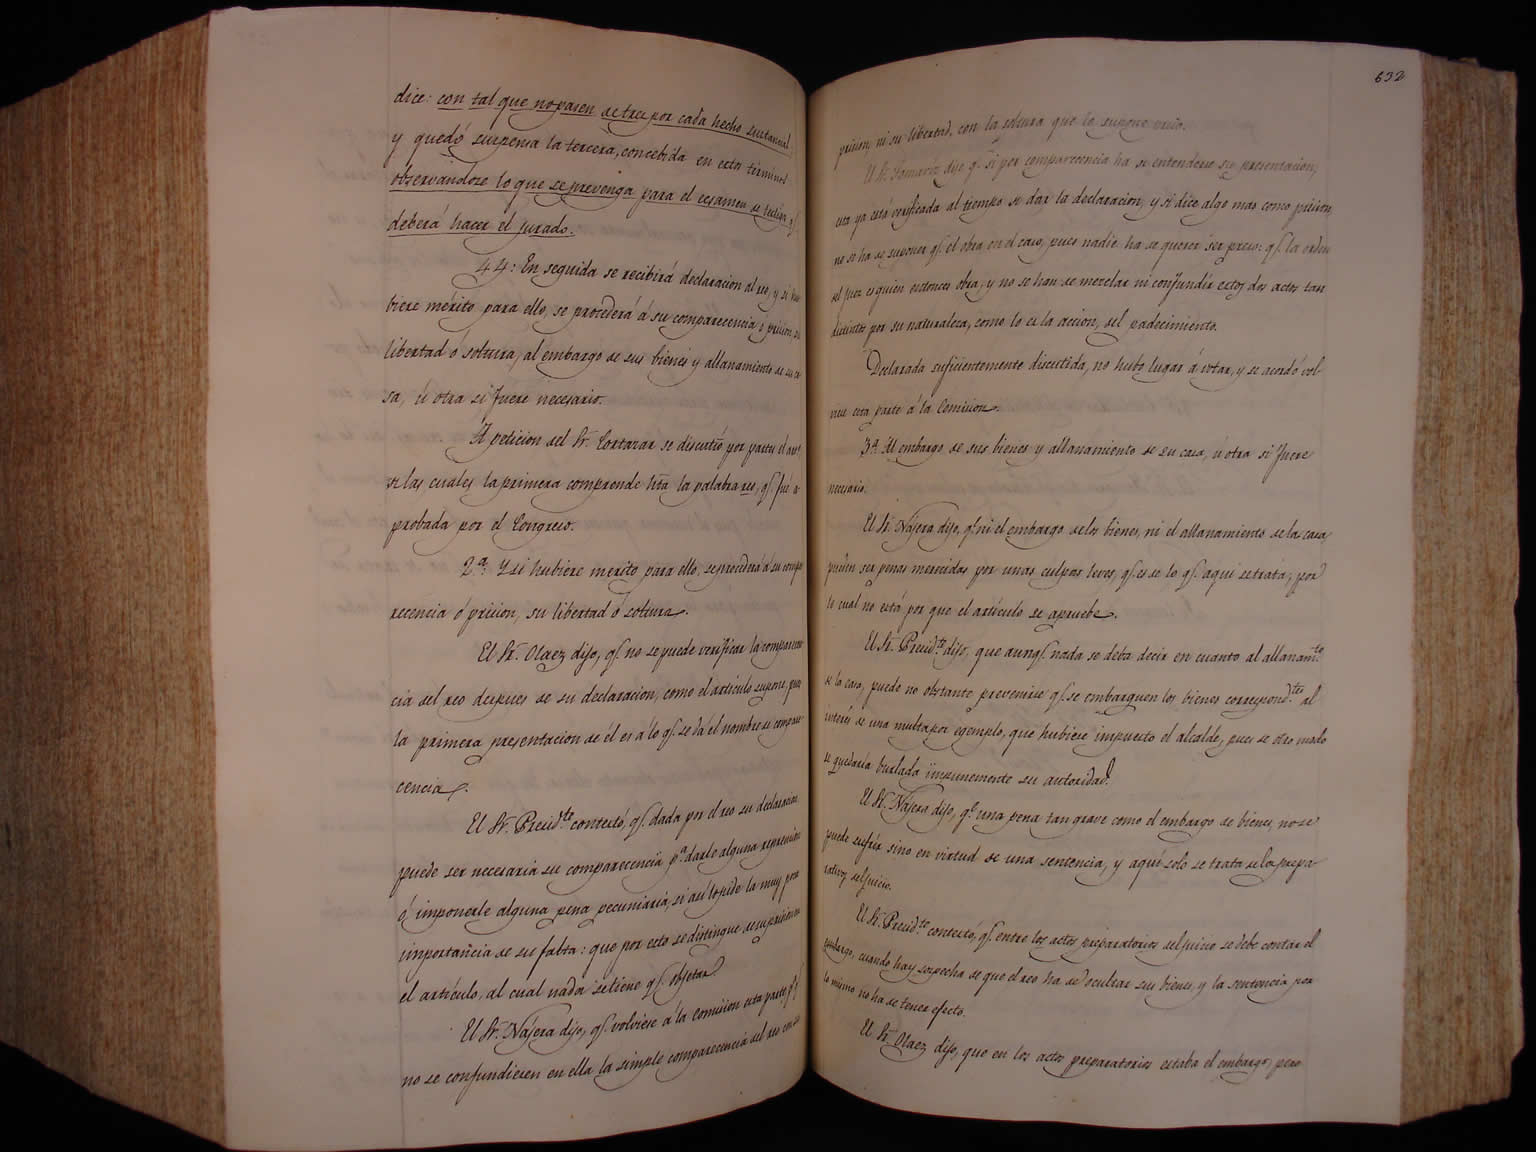 dice: con tal que no pasen de tres por cada hecho sustancial
y quedó suspensa la tercera, concebida en estos términos
observandose lo que se prevenga para el ecsamen de testigs. qe.
deberá hacer el jurado.
44: En seguida se recibirá declaracion al reo, y si hu-
biere mérito para ello, se procederá á su comparecencia ó prision, su
libertad ó soltura, al embargo de sus bienes y allanamiento de su ca-
sa, ú otra si fuere necesario.
A peticion del Sr. Cortazar se discutió por partes el arto.
de las cuales la primera comprende hta. la palabra reo, qe. fué a-
probada por el Congreso.
2a. Y si hubiere merito para ello, se procederá á su compa-
recencia ó prision, su libertad ó soltura.
El Sr. Olaez dijo, qe. no se puede verificar la comparecen-
cia del reo despues de su declaracion, como el artículo supone, pues
la primera presentacion de él es á lo qe. se dá el nombre de compare-
cencia.
El Sr. Presidte. contestó, qe. dada por el reo su declaracion
puede ser necesaria su comparecencia pa. darle alguna reprension
ó imponerle alguna pena pecuniaria, si asi lo pide la muy poca
importancia de su falta: que por esto se distingue de su prision en
el artículo, al cual nada se tiene qe. objetar.
El Sr. Nájera dijo, qe. volviese á la Comision esta parte, pa. qe.
no se confundiesen en ella la simple comparecencia del reo con su
632
prision, ni su libertad, con la soltura que la supone preso.
El Sr. Tamariz dijo qe. si por comparecencia ha de entenderse su presentacion,
esta ya está verificada al tiempo de dar la declaracion, y si dice algo mas como prision,
no se ha de suponer qe. él obra en el caso, pues nadie ha de querer ser preso: qe. la orden
del juez es quien entonces obra, y no se han de mezclar ni confundir estos dos actos tan
distintos por su naturaleza, como lo es la accion, del padecimiento.
Declarada suficientemente discutida, no hubo lugar á votar, y se acordó vol-
viese esta parte á la Comision.
3a. Al embargo de sus bienes y allanamiento de su casa, ú otra si fuere
necesario.
El Sr. Nájera dijo, qe. ni el embargo de los bienes, ni el allanamiento de la casa,
pueden ser penas merecidas por unas culpas leves, qe. es de lo qe. aqui se trata, por
lo cual no está por que el artículo se apruebe.
El Sr. Presidte. dijo, que aunqe. nada se deba decir en cuanto al allanamto.
de la casa, puede no obstante prevenirse qe. se embarguen los bienes correspondtes. al
interés de una multa por egemplo, que hubiese impuesto el alcalde, pues de otro modo
se quedaría burlada impunemente su autoridad.
El Sr. Nájera dijo, qe. una pena tan grave como el embargo de bienes, no se
puede sufrir sino en virtud de una sentencia, y aquí solo se trata de los prepa-
rativos del juicio.
El Sr. Presidte. contestó, qe. entre los actos preparatorios del juicio se debe contar el
embargo, cuando hay sospecha de que el reo ha de ocultar sus bienes, y la sentencia por
lo mismo no ha de tener efecto.
El Sr. Olaez dijo, que en los actos preparatorios estaba el embargo, pero